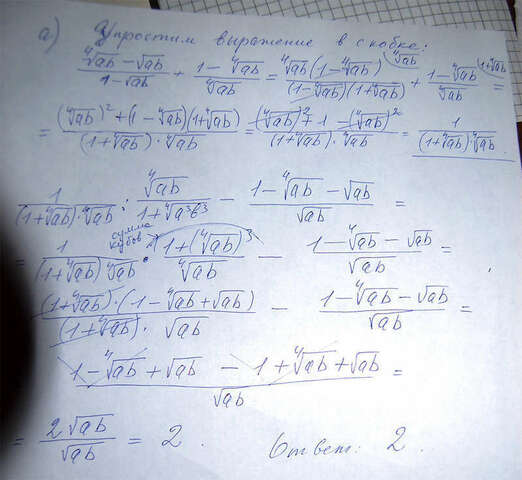 а) Упростим выражение в скобке:
(⁴√ab − √ab)/(1 − √ab) + (1 − ⁴√ab)/⁴√ab = ⁴√ab(1 − ⁴√ab)/((1 − ⁴√ab)(1 + ⁴√ab)) ⁴√ab + (1 − ⁴√ab)/⁴√ab 1+⁴√ab =
= ((⁴√ab)² + (1 − ⁴√ab)(1 + ⁴√ab))/((1 + ⁴√ab) · ⁴√ab) = ((⁴√ab)² + 1 − (⁴√ab)²)/((1 + ⁴√ab) · ⁴√ab) = 1/((1 + ⁴√ab) ⁴√ab)
1/((1 + ⁴√ab) · ⁴√ab) : ⁴√ab/(1 + ⁴√a³b³) − (1 − ⁴√ab − √ab)/√ab =
сумма
кубов
= 1/((1 + ⁴√ab) ⁴√ab) · (1 + (⁴√ab)³)/⁴√ab − (1 − ⁴√ab − √ab)/√ab =
(1 + ⁴√ab) · (1 − ⁴√ab + √ab)/((1 + ⁴√ab) · √ab) − (1 − ⁴√ab − √ab)/√ab =
(1 − ⁴√ab + √ab − 1 + ⁴√ab + √ab)/√ab =
= 2√ab/√ab = 2. Ответ: 2.